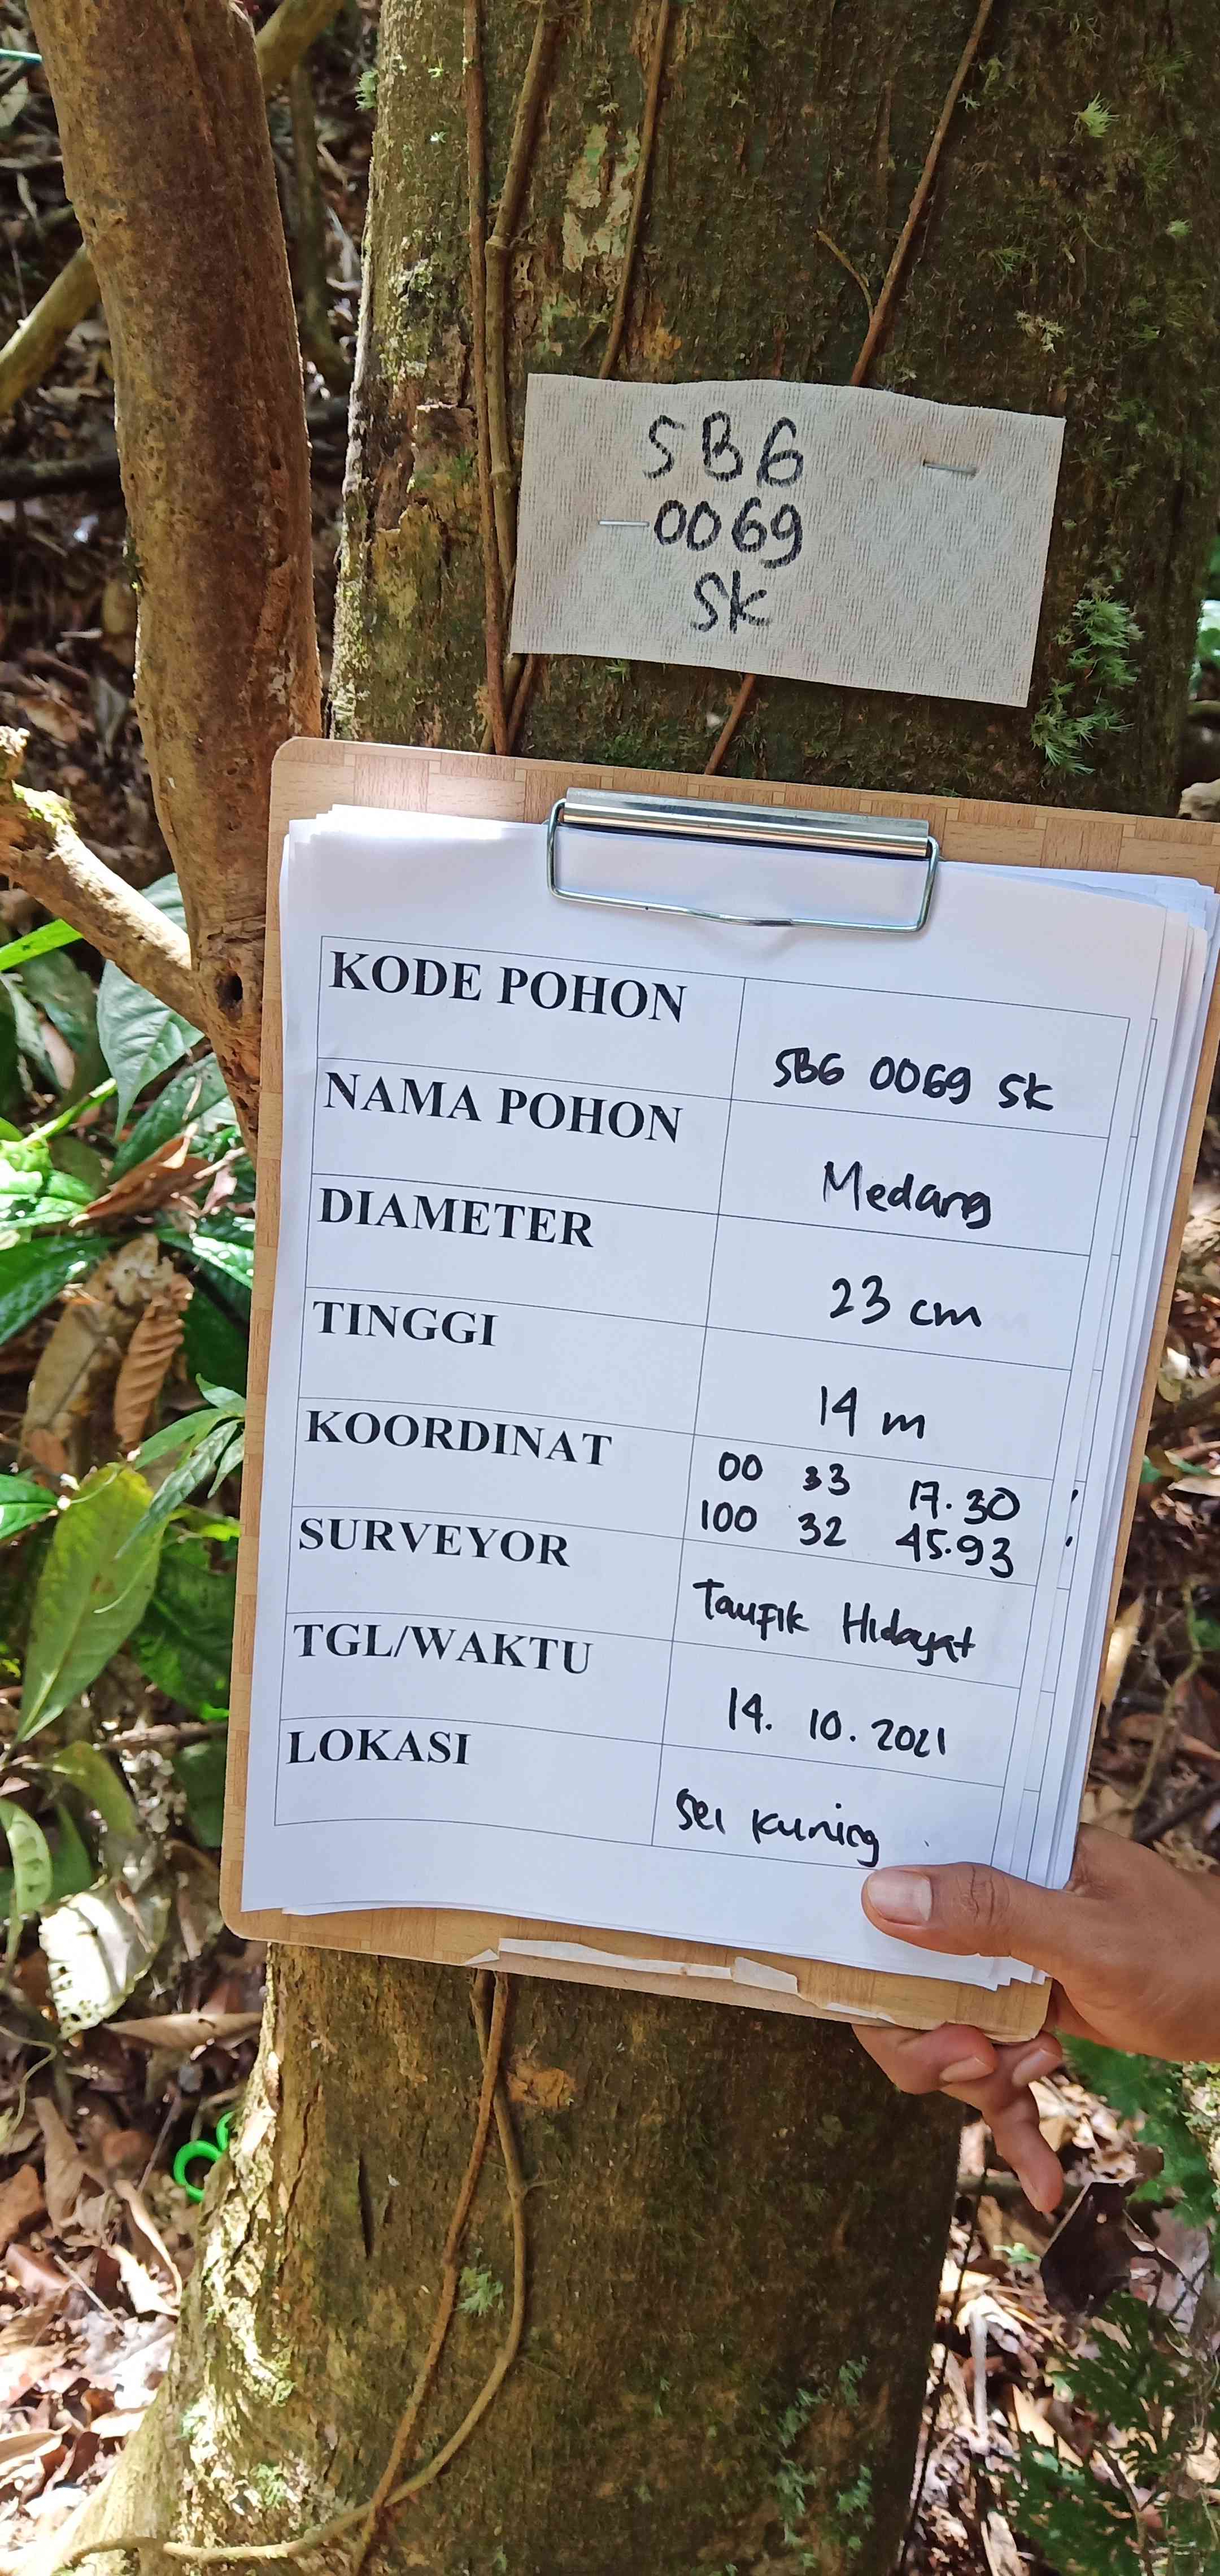 SBG
0069
SK
KODE POHON
SBG 0069 SK
NAMA POHON
Medang
DIAMETER
23 cm
TINGGI
14 m
KOORDINAT
00 33 17.30
100 32 45.93
SURVEYOR
Taufik Hidayat
TGL/WAKTU
14. 10. 2021
LOKASI
Sei Kuning